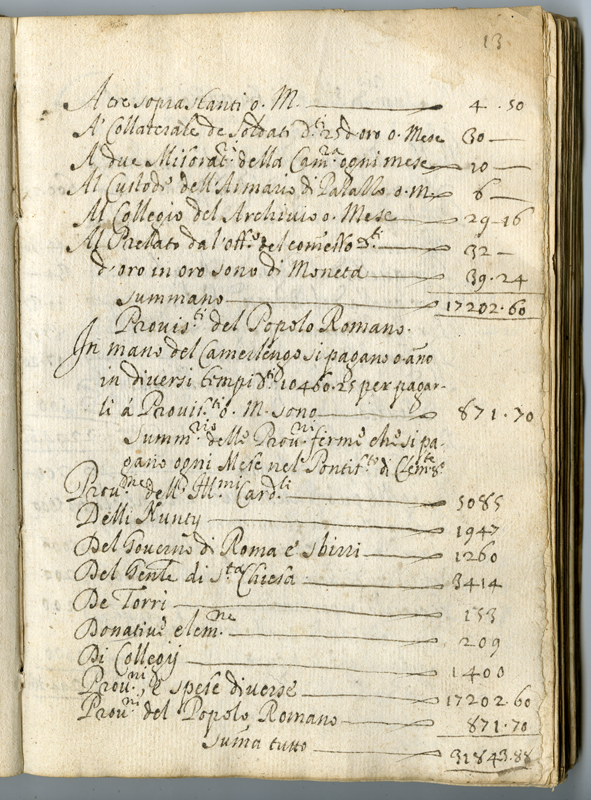 13.
A tre soprastanti o. M. 4 . 50
A' Collaterale de soldati d.ti 25 d'oro o. Mese 30 —
A due Misorat.ri della Cam.ra ogni mese 10 —
Al Custode dell'Armario di Palazzo o. M. 6 —
Al Collegio del Archivio o. Mese 29 - 16
Al Prelato da l'off.o del 32 —
d'oro in oro sono di Moneta 39 . 24
Summano 17202 . 60
Provis.ti del Popolo Romano.
In mano del Camerlengo si pagano o. año
in diversi tempi 10460 . 25 per pagar-
li á Provis.ti o. M. sono 871 . 70
Summ.rio delle Prov.ni ferme che si pa-
gano ogni Mese nel Pontif.to di Clem.te 8.o
Prov.ne dell' Ill.mi Card.li 5085
Delli Nunty 1947
Del Governo di Roma e' sbirri 1260
Del Gente di S.ta Chiesa 3414
De Torri 153
Donativi elem.ne 209
Di Collegij 1400
Prov.ni, e spese diverse 17202 . 60
Prov.ni del Popolo Romano 871 . 70
Suma tutto 31843 . 88